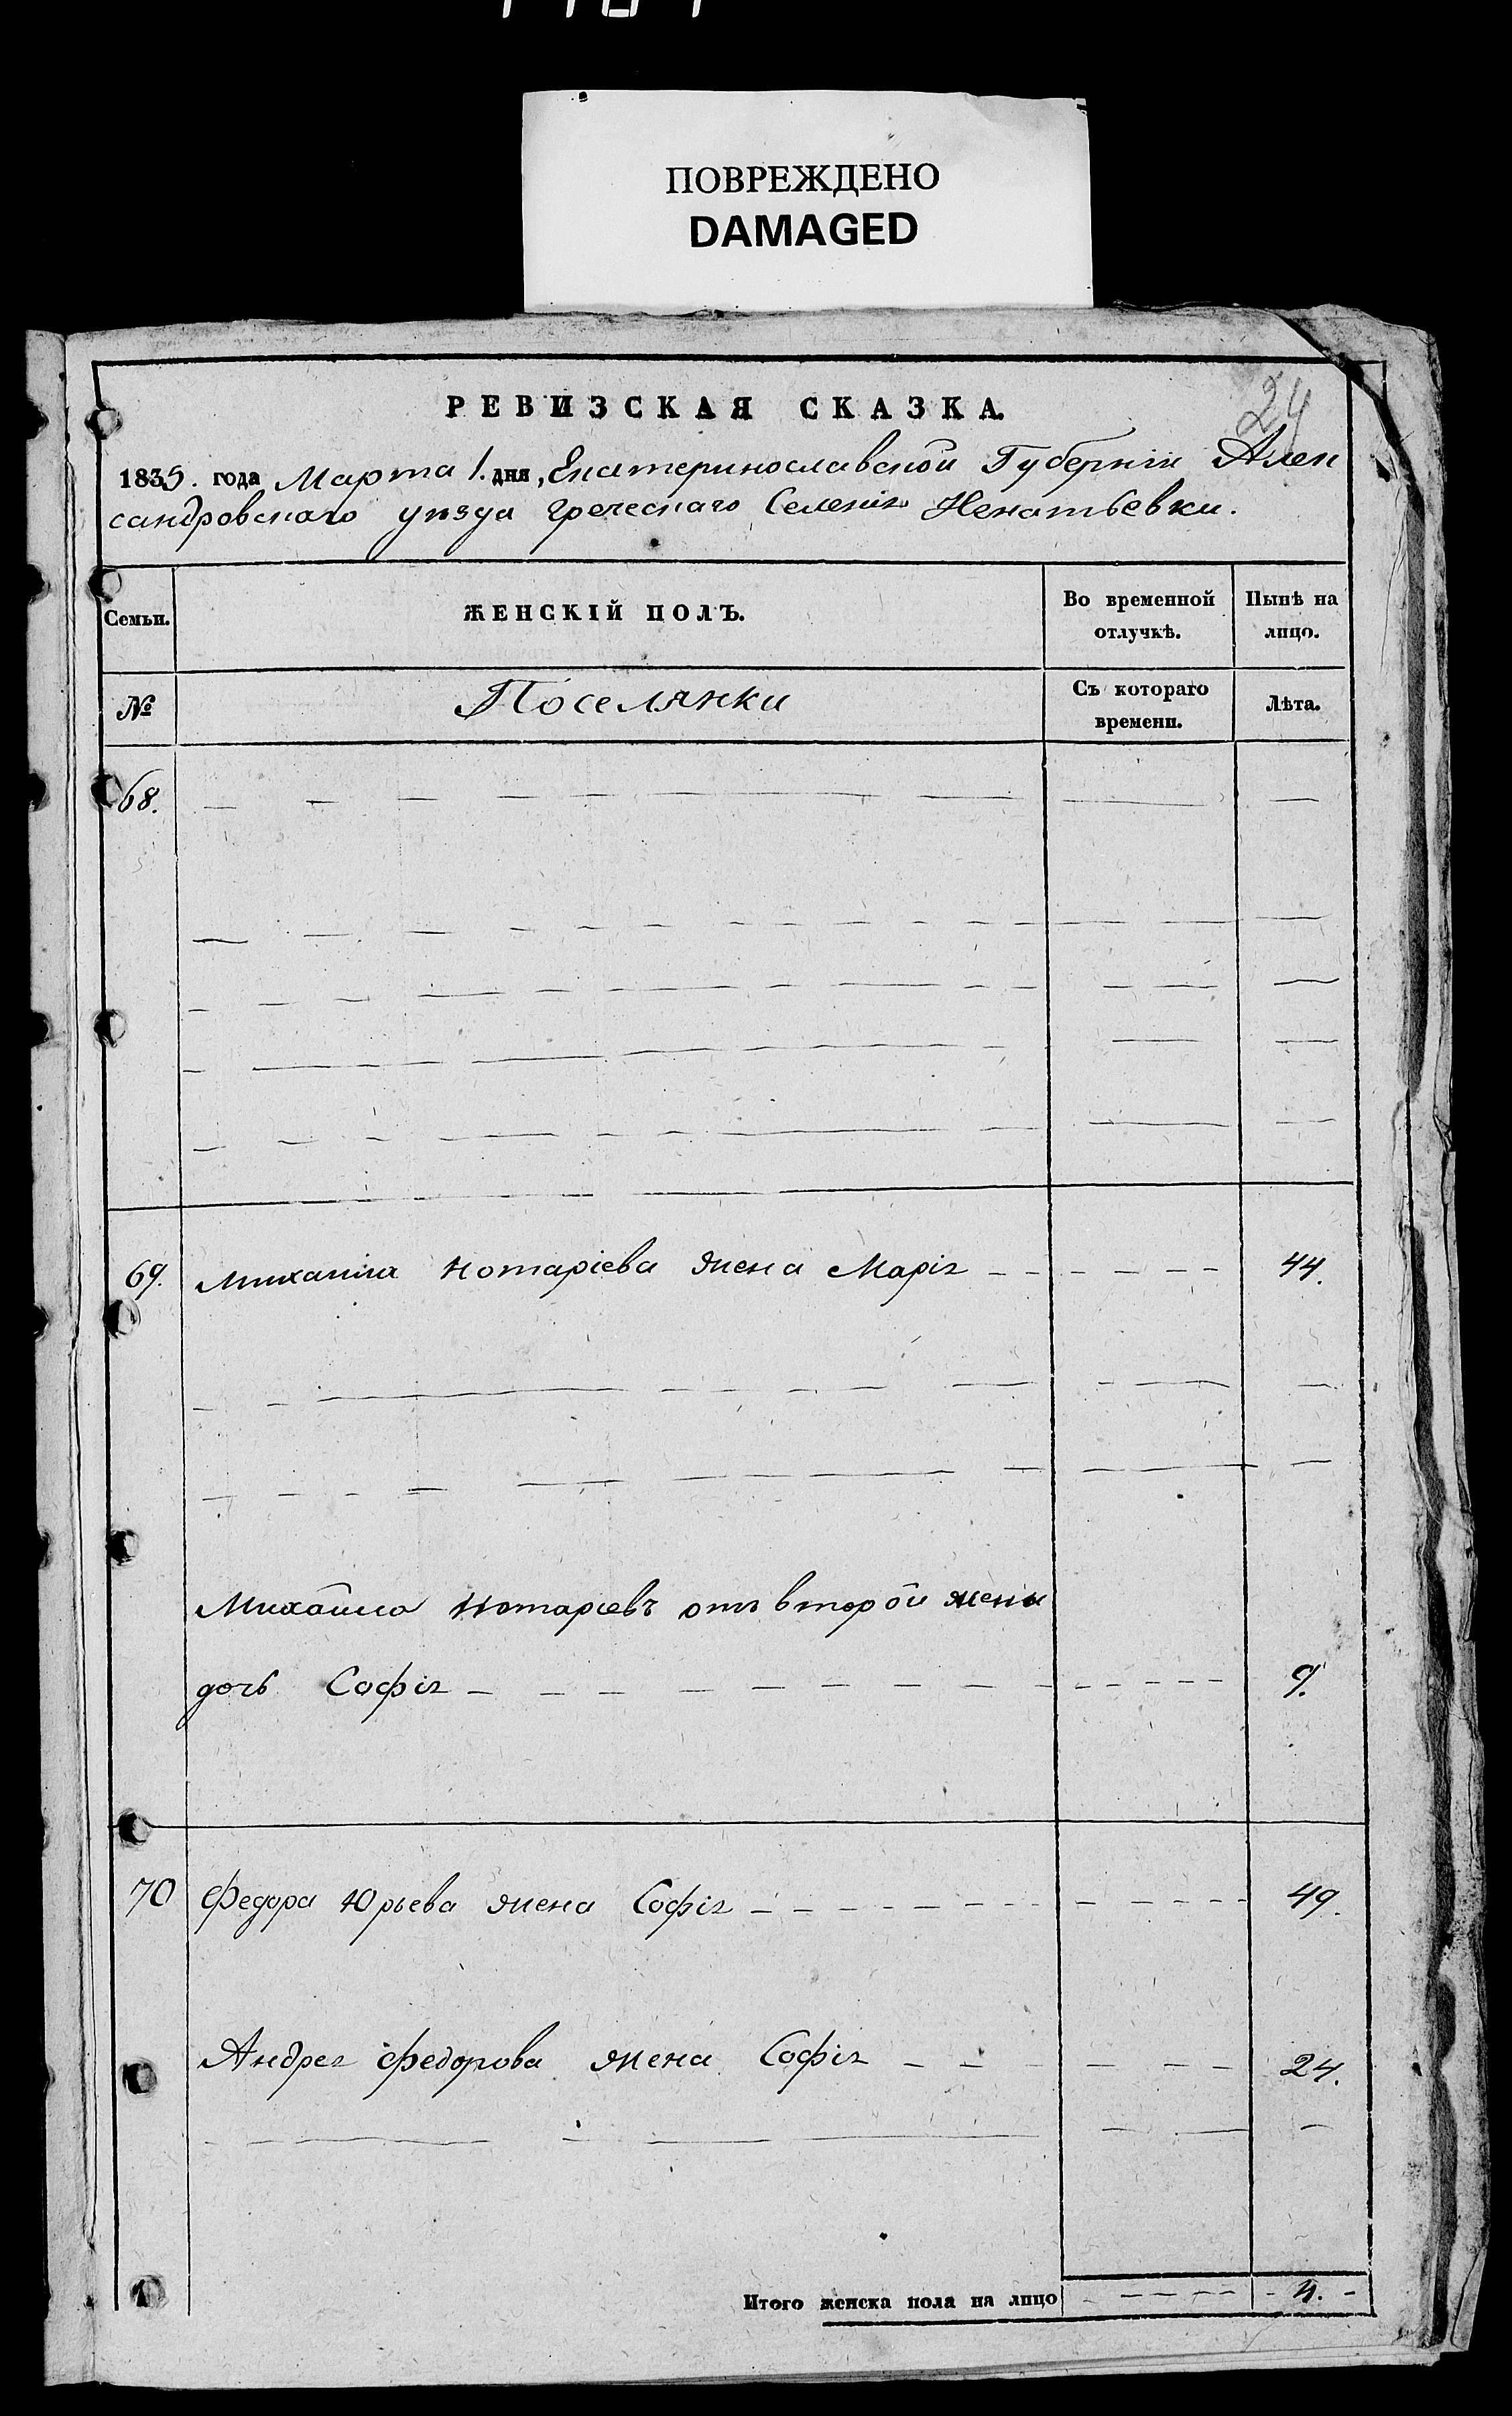 ПОВРЕЖДЕНО
DAMAGED
РЕВИЗСКАЯ СКАЗКА.
24
1835. года Марта 1. дня, Екатеринославской Губерніи Алек
сандровскаго уѣзда греческаго Селенія Игнатьевки.
Семьи.
ЖЕНСКІЙ ПОЛЪ.
Во временной
отлучкѣ.
Нынѣ на
лицо.
№
Поселянки
Съ котораго
времени.
Лѣта.
68.
69. Михаила Нотаріева жена Марія 44.
Михайла Нотаріевъ отъ второй жены
дочь Софія 9.
70 Федора Юрьева жена Софія 49.
Андрея Федорова жена Софія 24.
Итого женска пола на лицо 4.